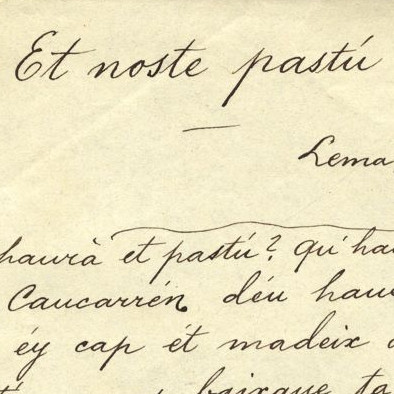 Et noste pastú
Lema
haurà et pastú? qu'ha
Caucarrén déu haue
éy cap ét madeix
baixaue ta